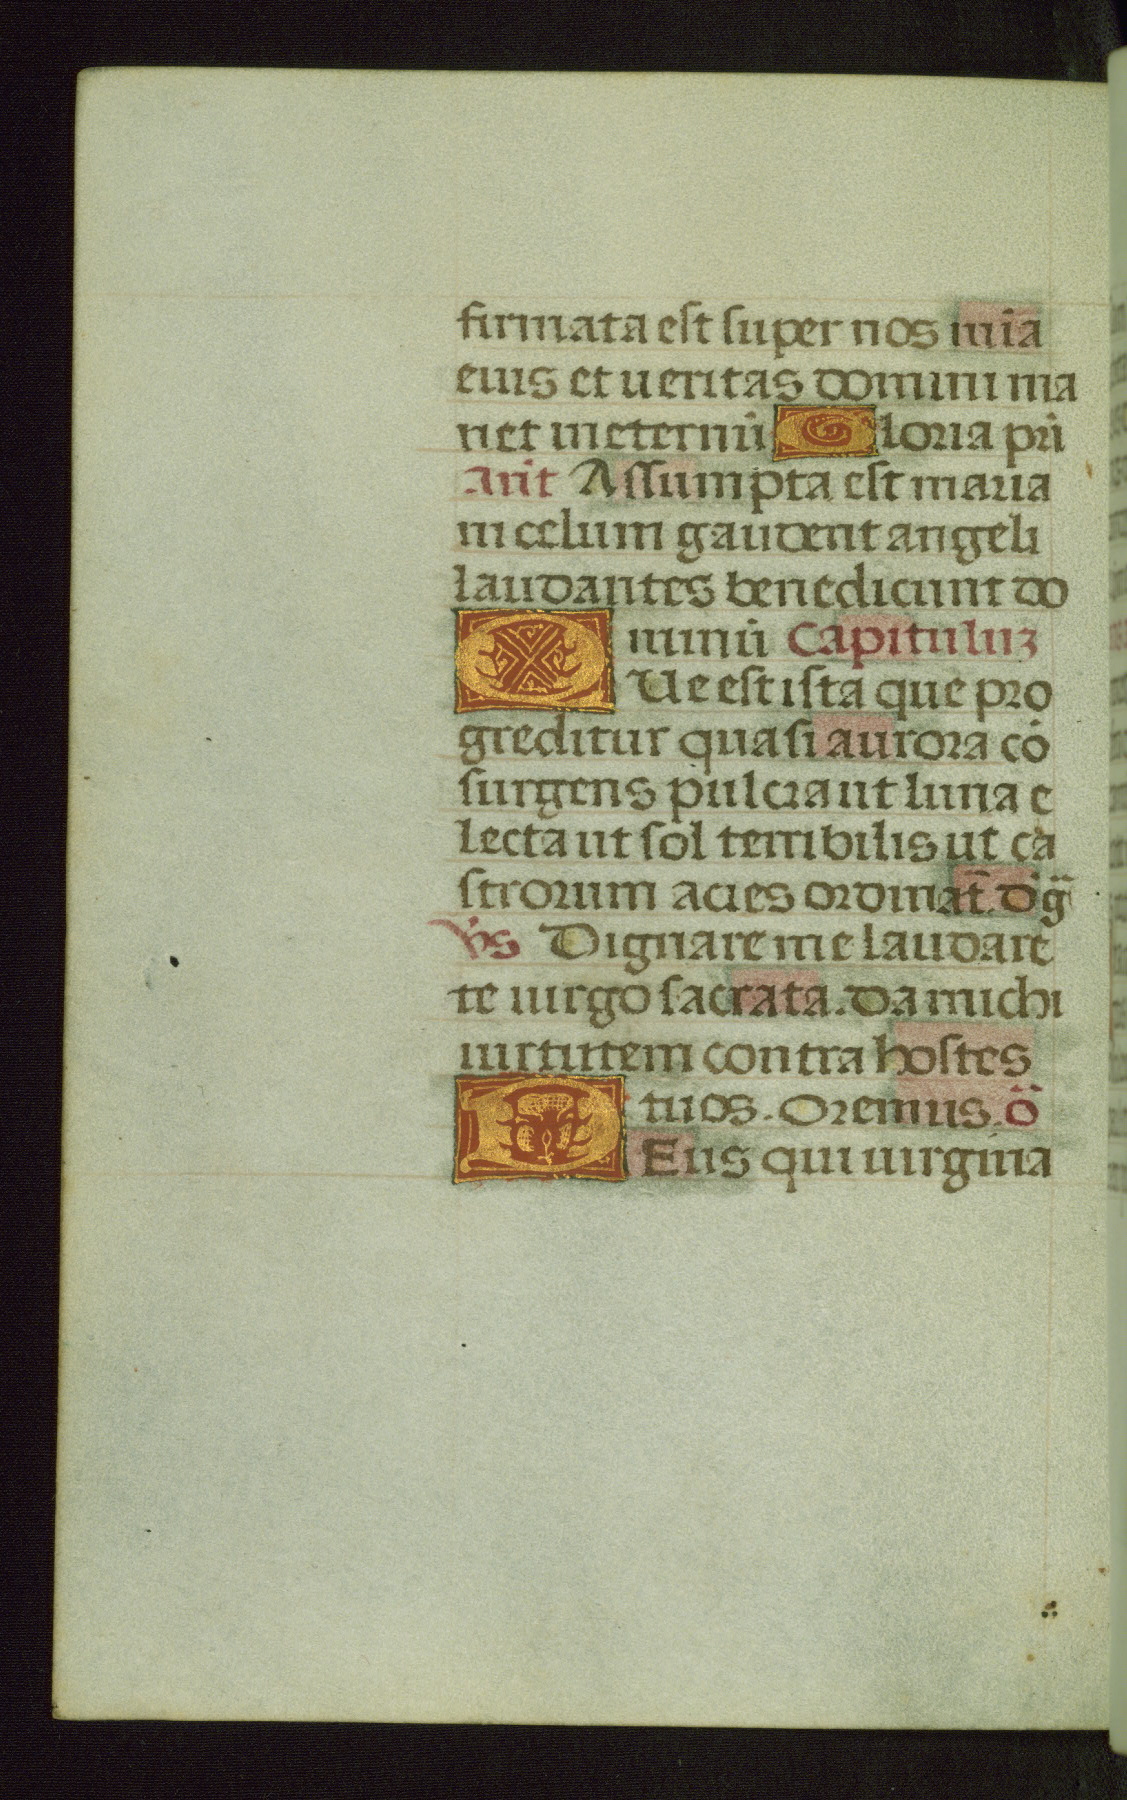 firmata est super nos mīa
eius et ueritas domini ma
net in eternū Gloria pr̄i
Añt Assumpta est maria
in celum gaudent angeli
laudantes benedicunt do
minū Capituluʒ
Que est ista que pro
greditur quasi aurora cō
surgens pulcra ut luna e
lecta ut sol terribilis ut ca
strorum acies ordinat̄. d̄g̃
Vs Dignare me laudare
te uirgo sacrata. Da michi
uirtutem contra hostes
tuos. Oremus. ō
DEus qui uirgina